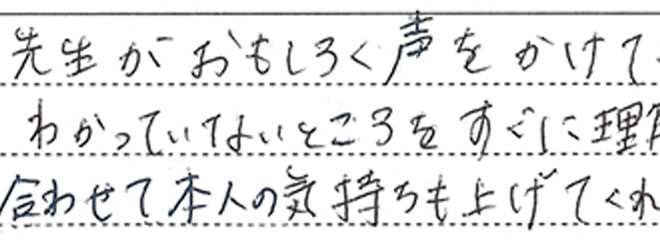 先生がおもしろく声をかけて
わかっていないところをすぐに理
合わせて本人の気持ちも上げてくれ